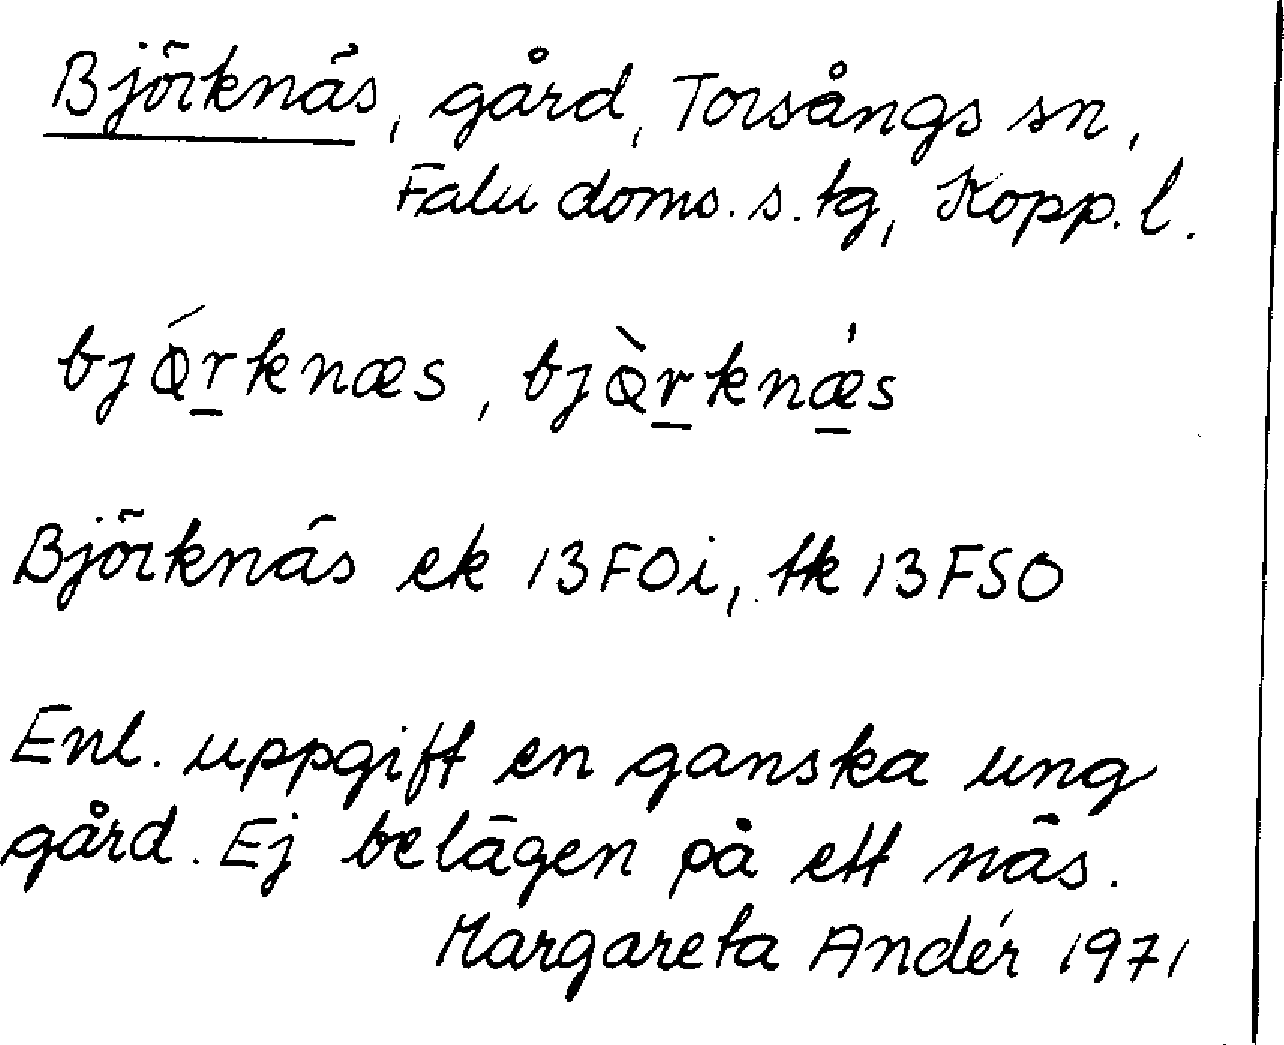 Björknäs, gård, Torsångs sn,
Falu doms.s.tg, Kopp. l.
bjǫ́r̲knæs, bjǫ̀r̲knæ̲̍s
Björknäs ek 13F0i, tk 13FSO
Enl. uppgift en ganska ung
gård. Ej belägen på ett näs.
Margareta Andér 1971